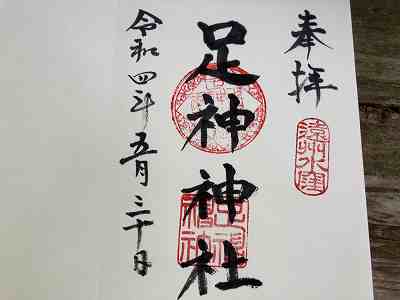 奉拝
遠州水窪
足神神社
令和四年五月三十日